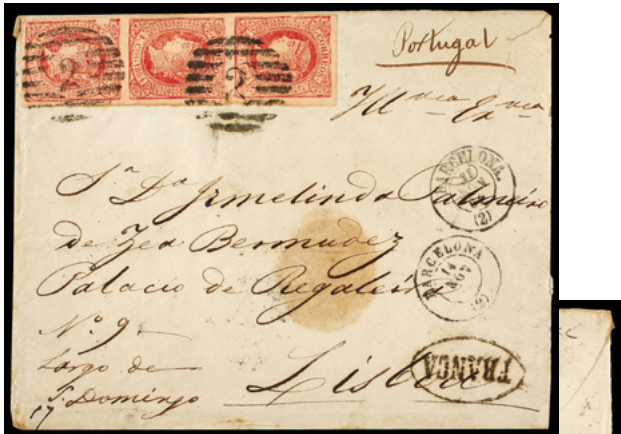 Portugal
Yll^ma Ex^ma
2 2
S.ª D.ª Irmelinda Palmeiro
de Zea Bermudez
Palacio de Regaleira
N.º 9
Largo de
S. Domingo
Lisboa
17
BARCELONA.
(2)
BARCELONA
(2)
FRANCA